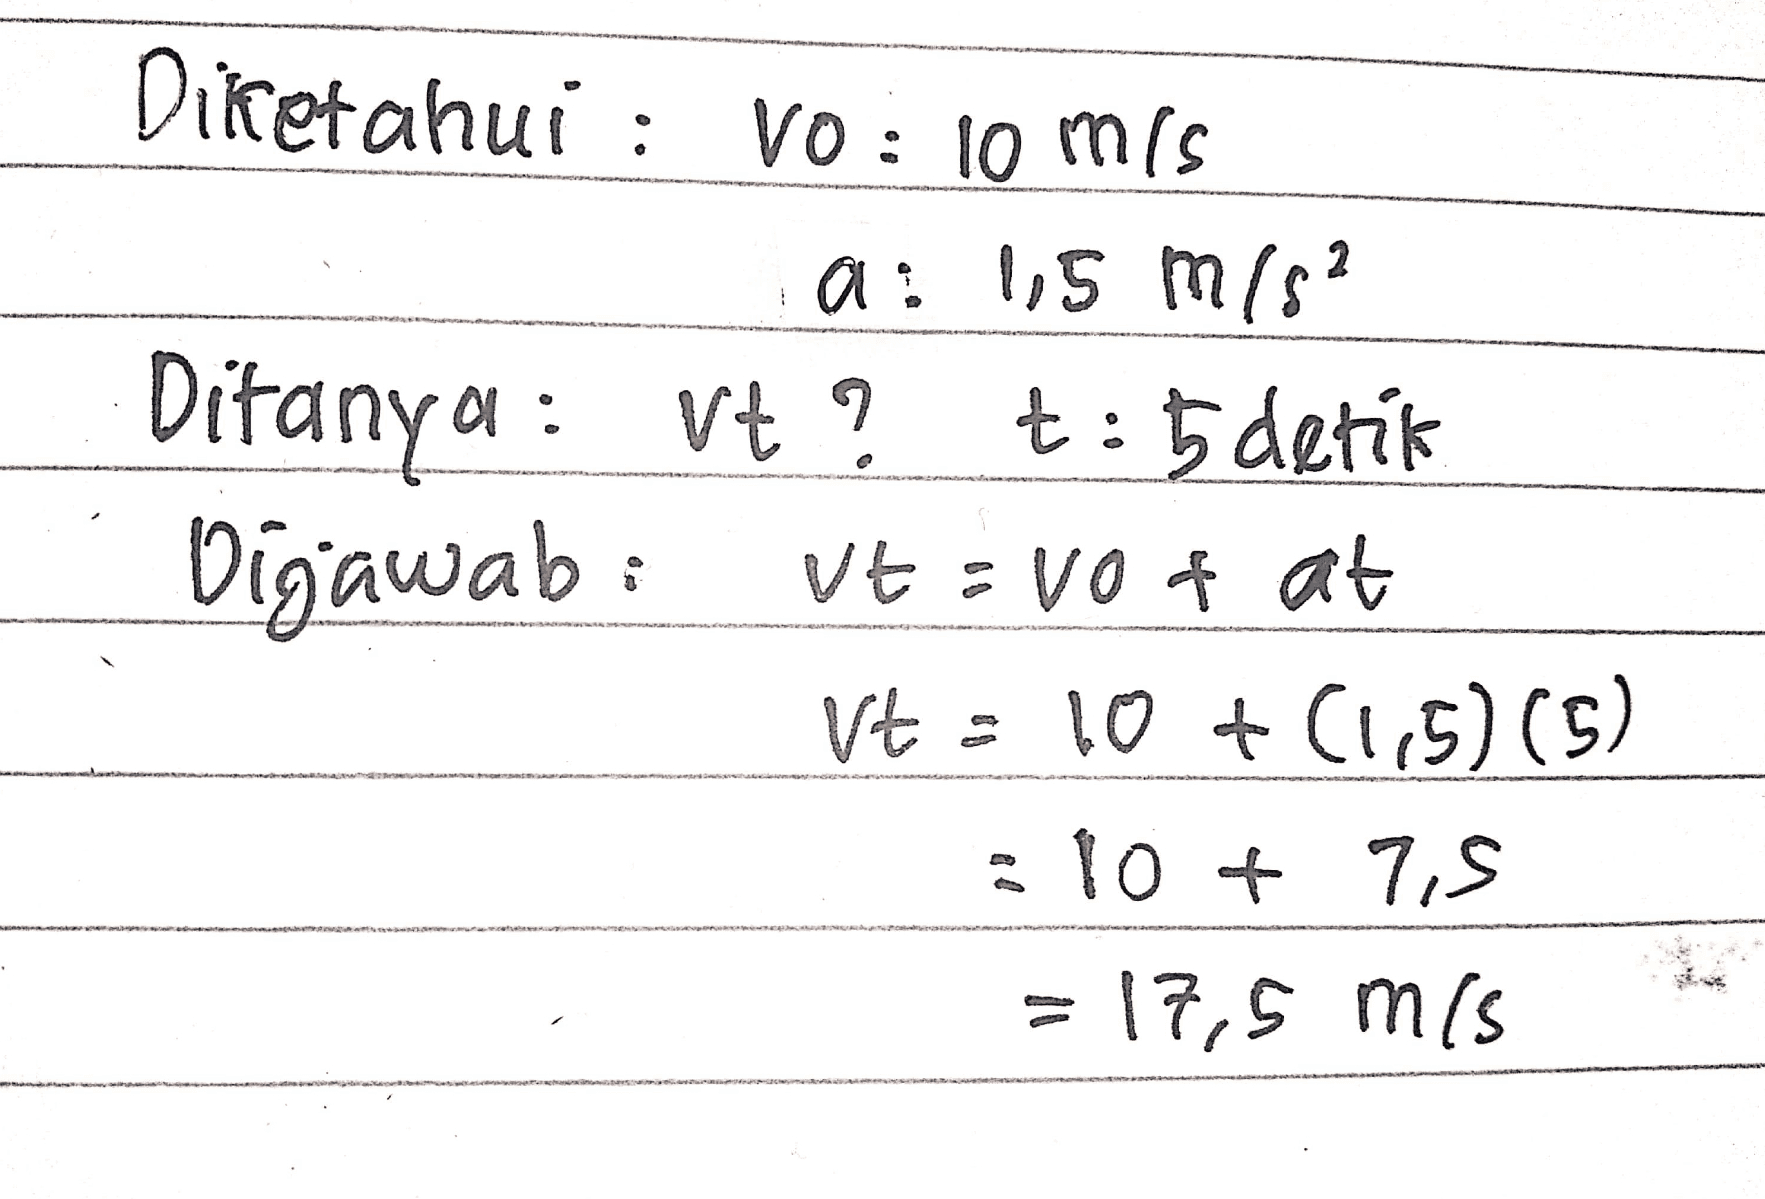 Diketahui : vo : 10 m/s
a : 1,5 m/s²
Ditanya : vt ? t : 5 detik
Dijawab : vt = vo + at
vt = 10 + (1,5) (5)
= 10 + 7,5
= 17,5 m/s